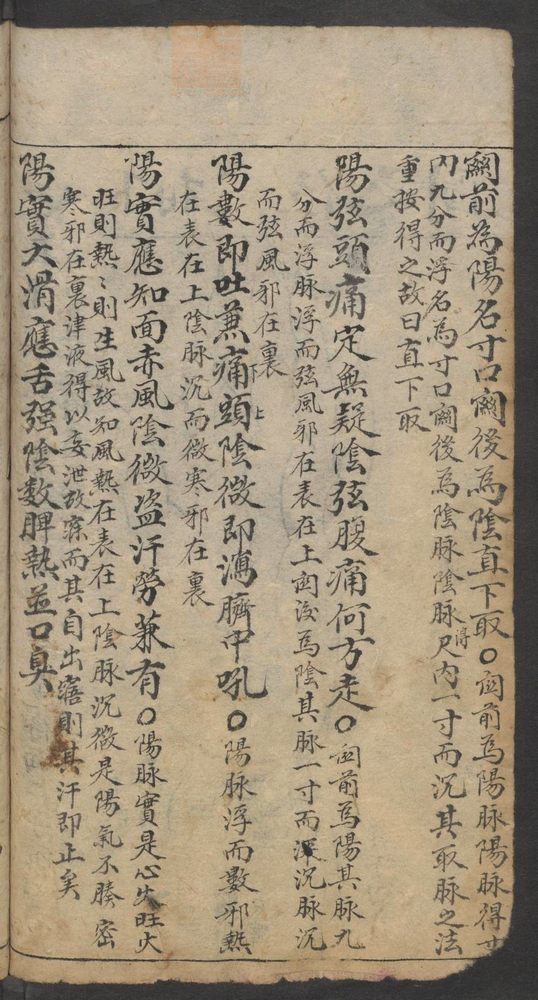 關前為陽名寸口關後為陰直下取○關前為陽脉陽脉得寸
内九分而浮名為寸口關後為陰脉陰脉得尺内一寸而沉其取脉之法
重按得之故曰直下取
陽弦頭痛定無疑陰弦腹痛何方走○關前為陽其脉九
分而浮脉浮而弦風邪在表在上關後為陰其脉一寸而深沉脉沉
而弦風邪在裏下
陽數即吐兼痛頭陰微即瀉臍中吼○陽脉浮而數邪熱上
在表在上陰脉沉而微寒邪在裏
陽實應知面赤風陰微盗汗勞兼有○陽脉實是心火旺火
旺則熱〻則生風故知風熱在表在上陰脉沉微是陽氣不腠密
寒邪在裏津液得以妄泄故寐而其自出寤則其汗即止矣
陽實大滑應舌强陰數脾熱並口臭